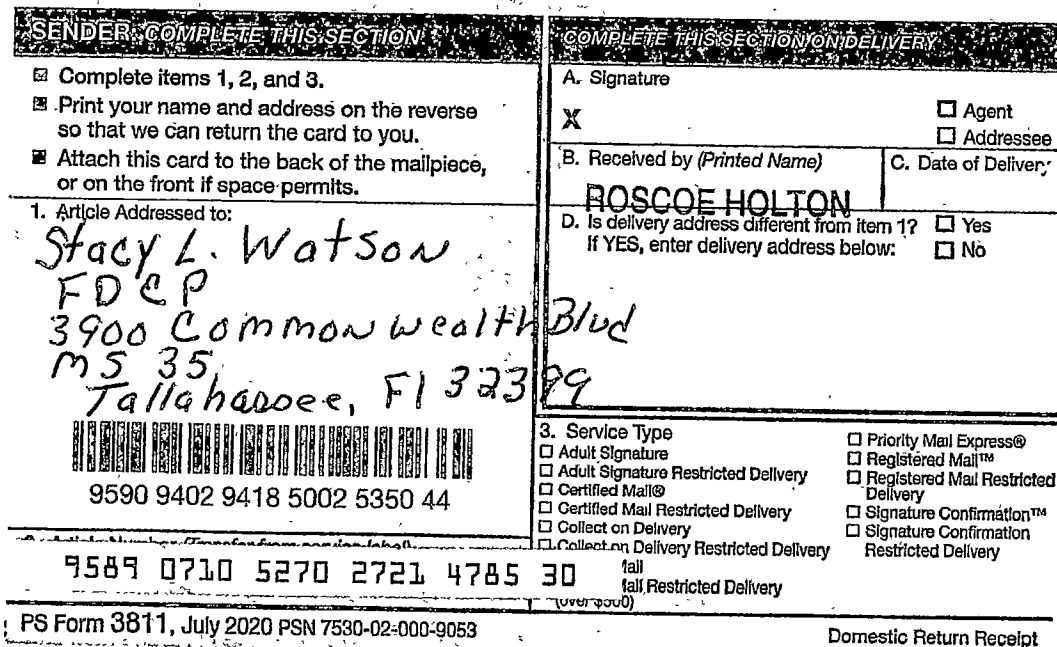 SENDER: COMPLETE THIS SECTION
Complete items 1, 2, and 3.
Print your name and address on the reverse
so that we can return the card to you.
Attach this card to the back of the mailpiece,
or on the front if space permits.
1. Article Addressed to:
Stacy L. Watson
FDCP
3900 Commonwealth Blvd
MS 35
Tallahassee, Fl 32399
9590 9402 9418 5002 5350 44
9589 0710 5270 2721 4785 30
COMPLETE THIS SECTION ON DELIVERY
A. Signature
X
☐ Agent
☐ Addressee
B. Received by (Printed Name)
C. Date of Delivery
ROSCOE HOLTON
D. Is delivery address different from item 1? ☐ Yes
If YES, enter delivery address below: ☐ No
3. Service Type
☐ Adult Signature
☐ Adult Signature Restricted Delivery
☐ Certified Mail®
☐ Certified Mail Restricted Delivery
☐ Collect on Delivery
☐ Collect on Delivery Restricted Delivery
fail
fail Restricted Delivery
(over $500)
☐ Priority Mail Express®
☐ Registered Mail™
☐ Registered Mail Restricted
Delivery
☐ Signature Confirmation™
☐ Signature Confirmation
Restricted Delivery
PS Form 3811, July 2020 PSN 7530-02-000-9053
Domestic Return Receipt